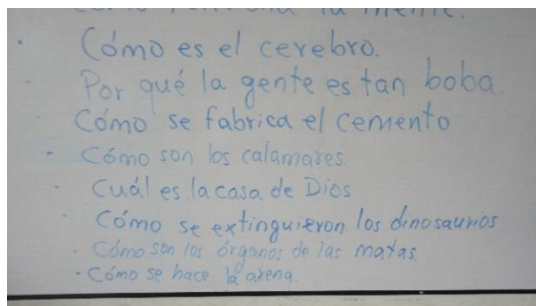 Cómo funciona la mente.
· Cómo es el cerebro.
Por qué la gente es tan boba.
Cómo se fabrica el cemento
- Cómo son los calamares.
· Cuál es la casa de Dios
· Cómo se extinguieron los dinosaurios
· Cómo son los órganos de las matas.
· Cómo se hace la arena.